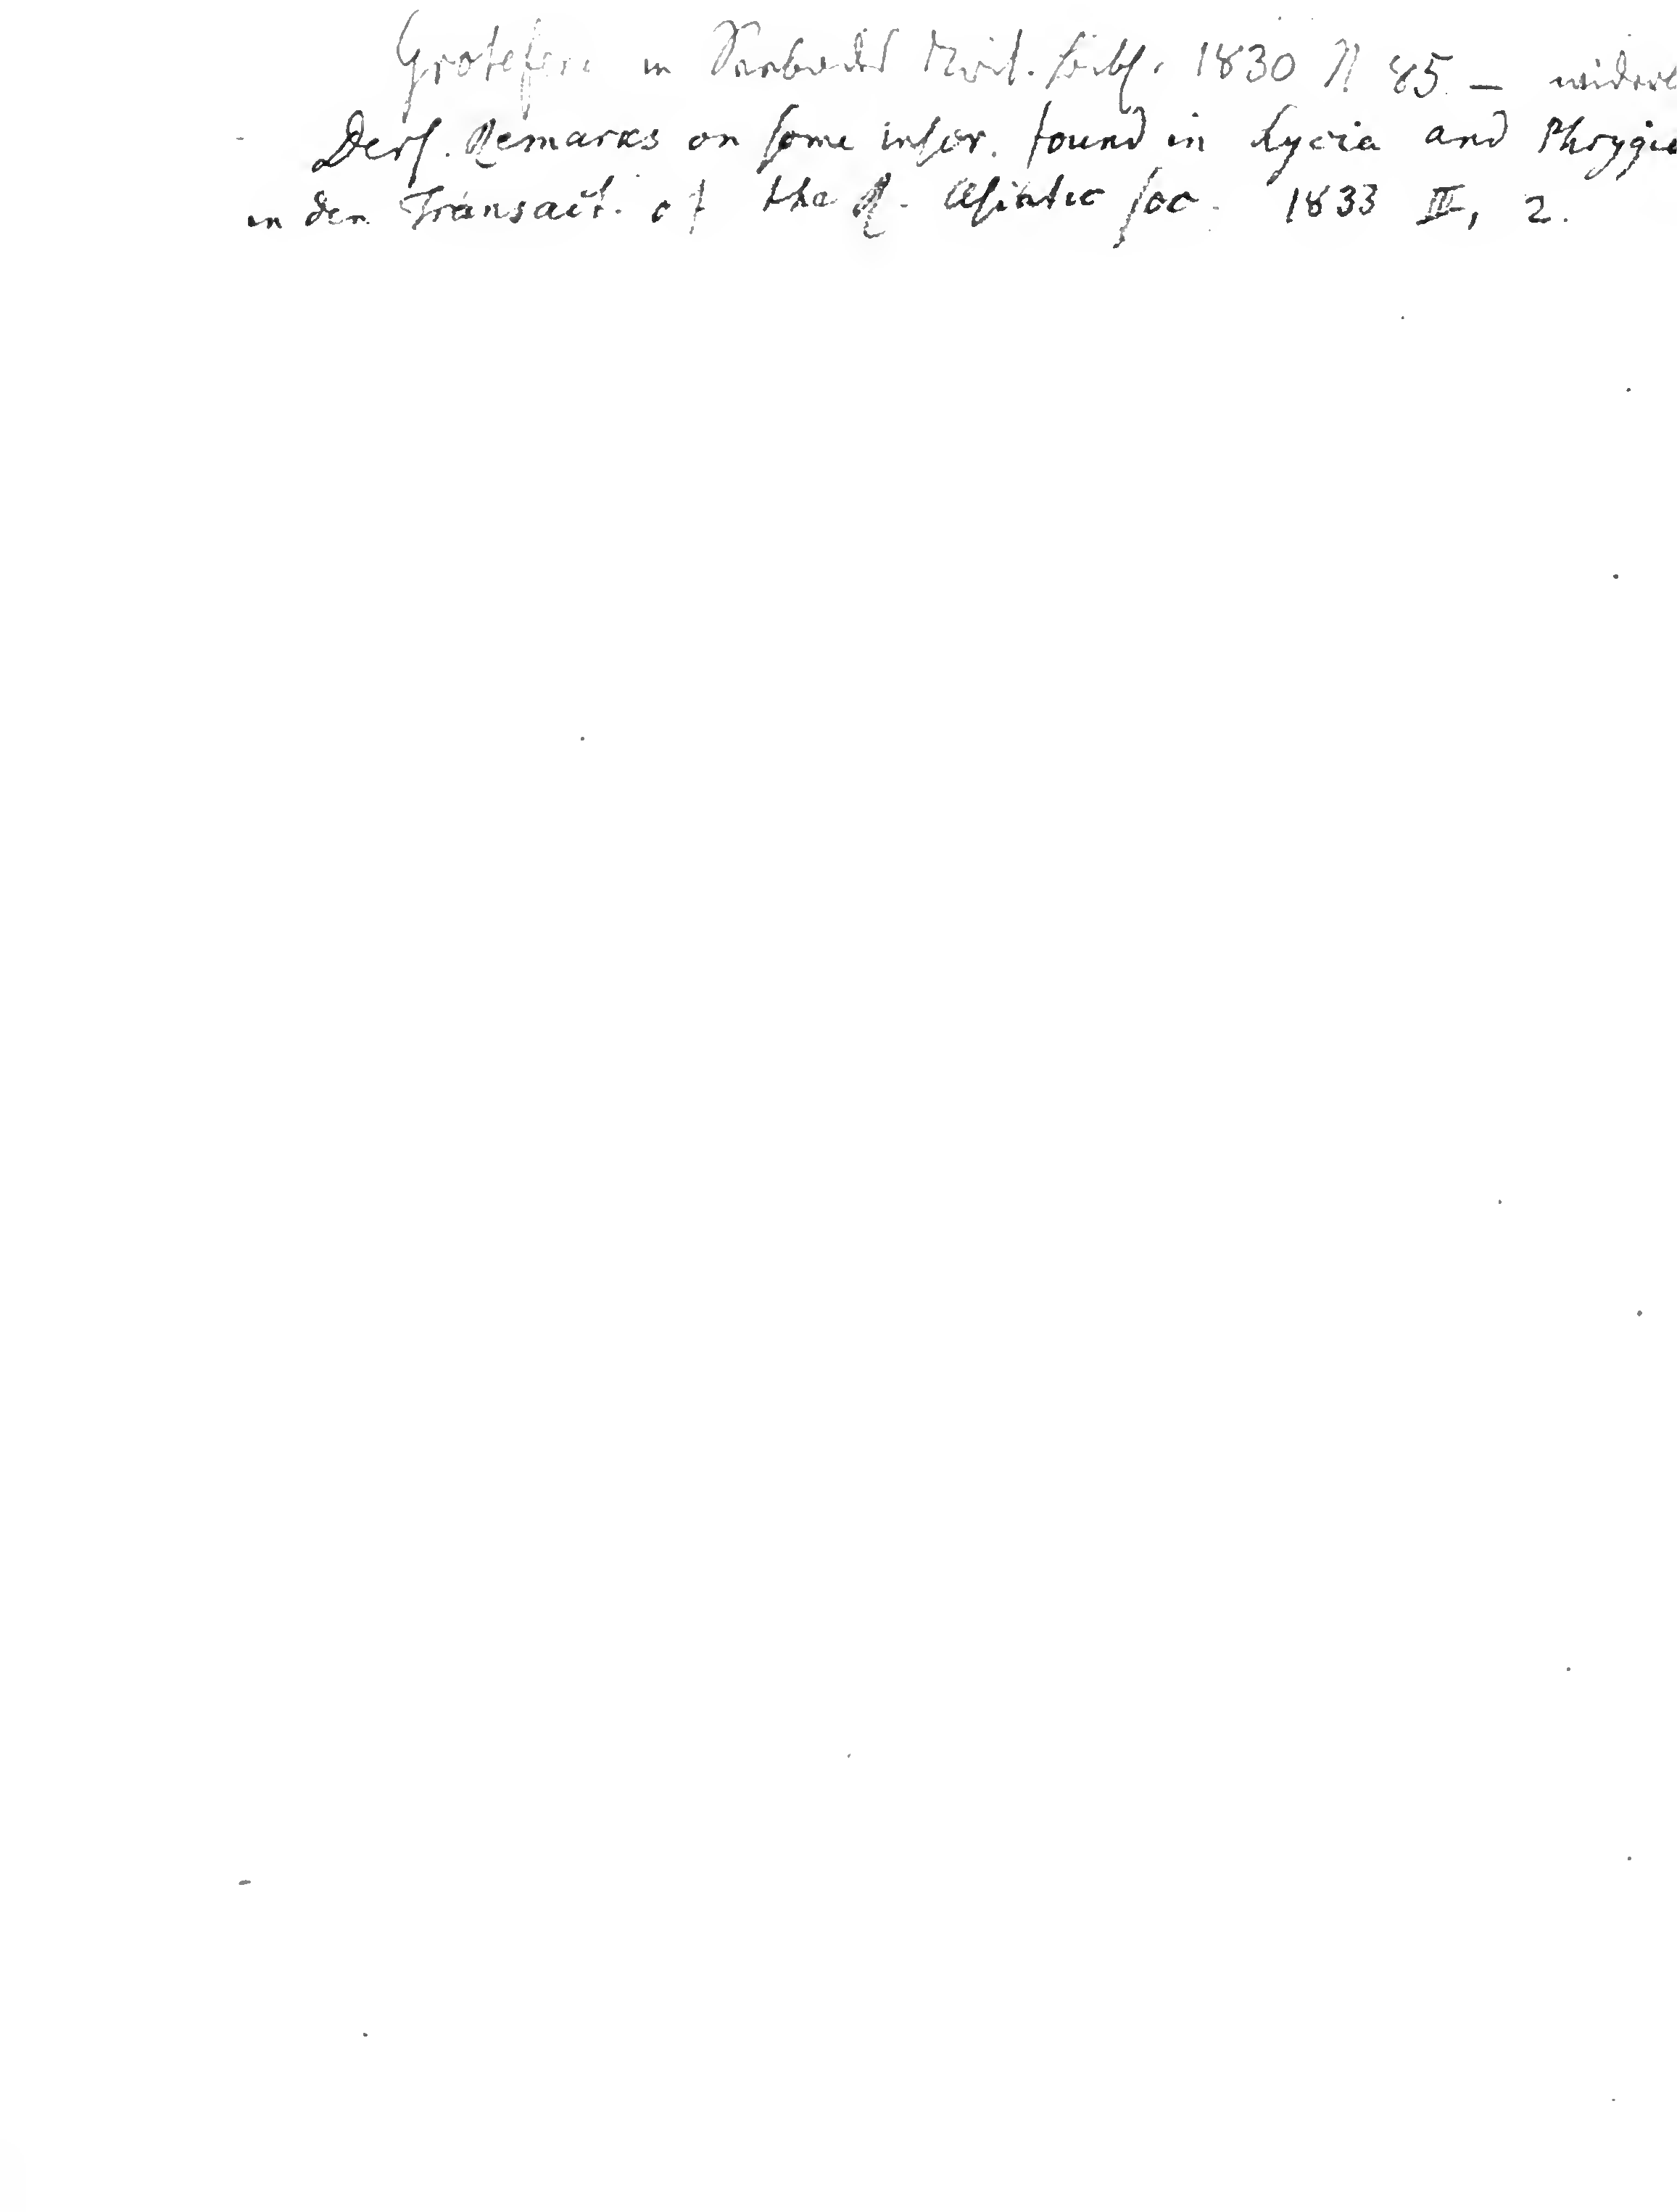 Grotefend in 1830 N 85. —
Ders. Remarks on some inscr. found in Lycia and Phrygia
in den Transact. of the R. Asiatic soc. 1833 III, 2.